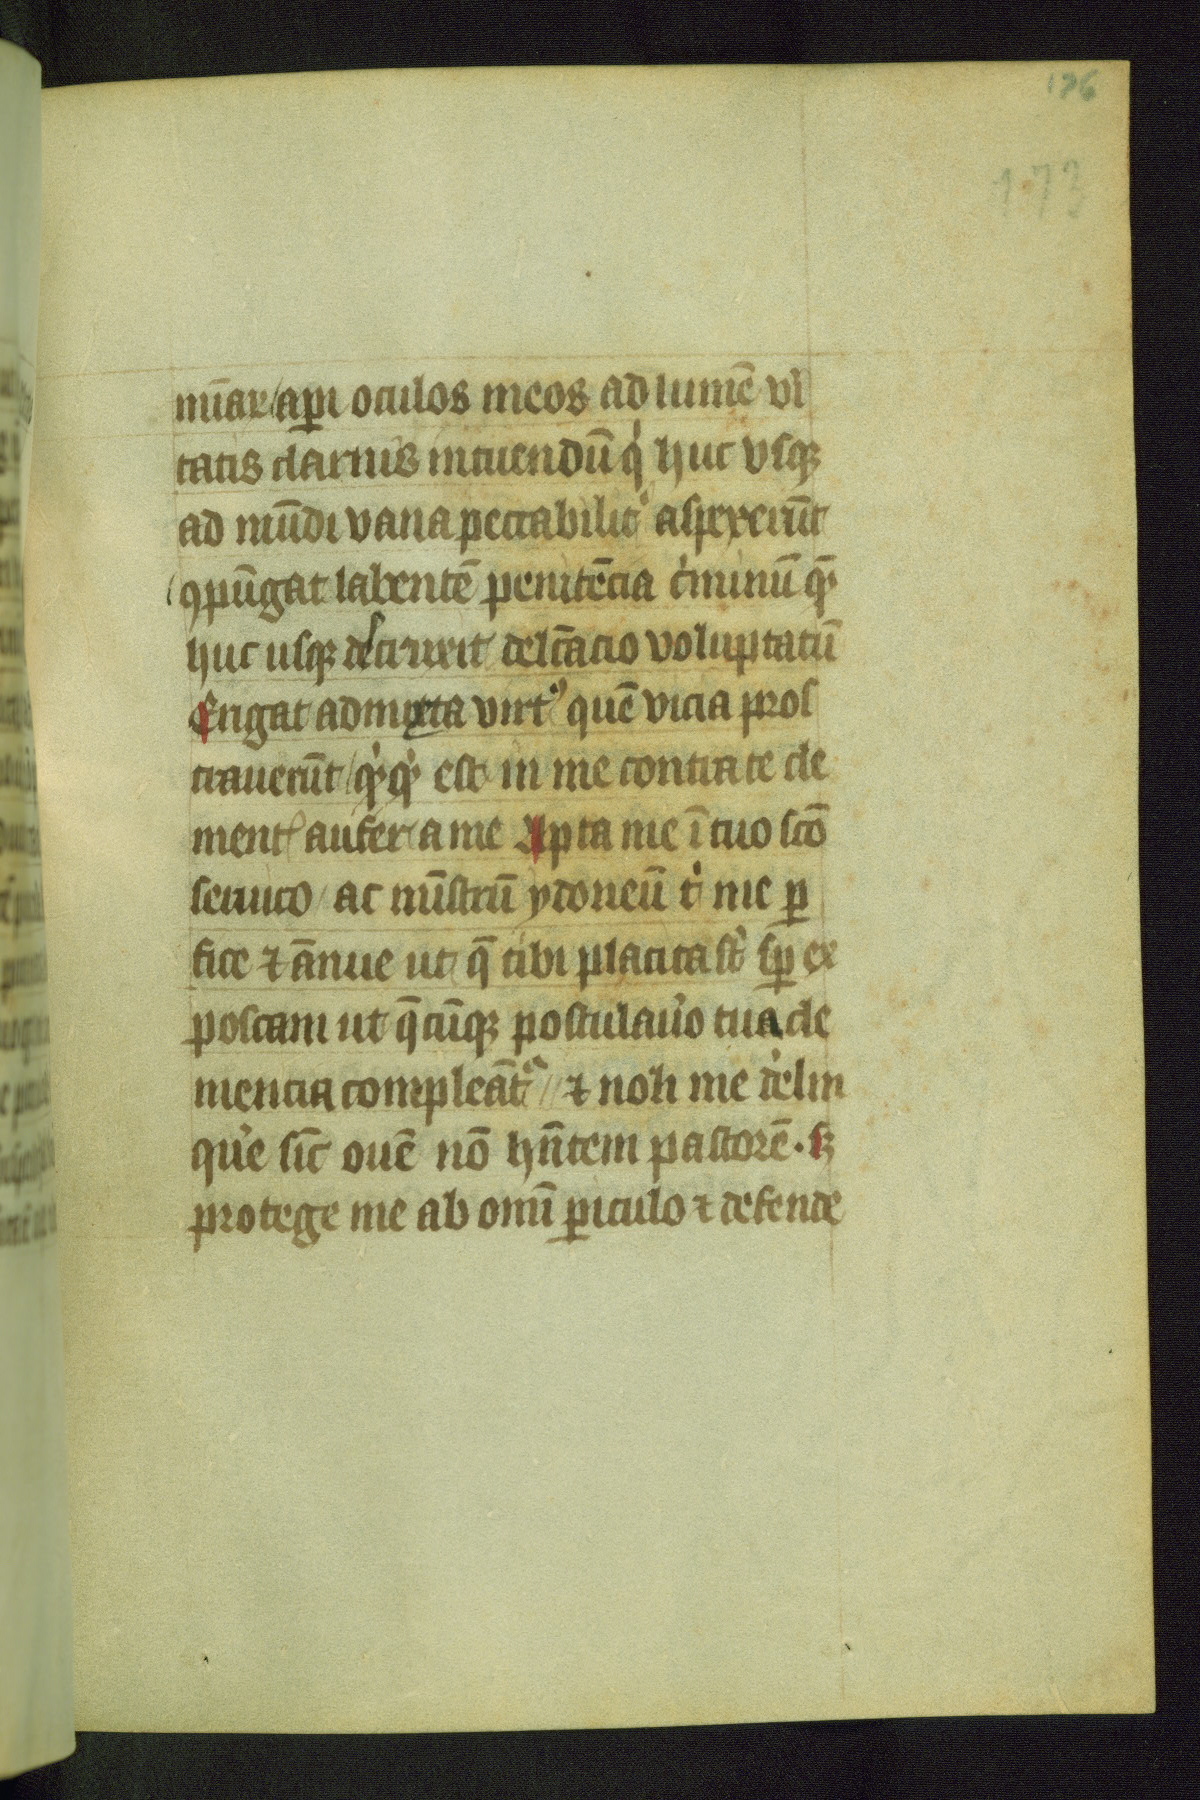 176
173
nūar / aꝑi oculos meos ad lumē vi
tatis clarius intuendū qͥ huc vsqꝫ
ad mūdi vana peccabilit᷑ aspexerūt
ꝯpūgat labentē penitēcia cͥminū qͫ
huc usqꝫ delc̄acio voluptatū
Erigat admixta virt᷒ quē vicia pros
trauerūt / qͥcqͥd est in me contra te cle
ment᷑ aufer a me Apta me ī tuo scō
seruico / ac mīstrū ydoneū tͥ me ꝑ
fice ⁊ ānue ut q̄ tibi placita sūt sꝑ ex
poscam ut q̄cūqꝫ postulauͦo tua cle
mencia compleāt᷑ // ⁊ noli me dͤlin
quͤe sic̄ ouē nō hn̄tem pastorē . sꝫ
protege me ab omī ꝑiculo ⁊ defende